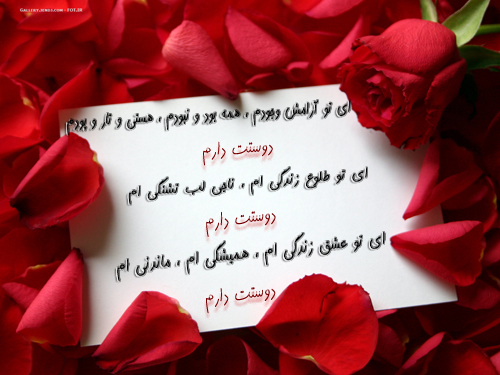 GALLERY.AVAXA.COM - FOT.IR
ای تو آرامش وجودم ، همه بود و نبودم ، هستی و تار و پودم
دوستت دارم
ای تو طلوع زندگی ام ، ناجی لب تشنگی ام
دوستت دارم
ای تو عشق زندگی ام ، همیشگی ام ، ماندنی ام
دوستت دارم